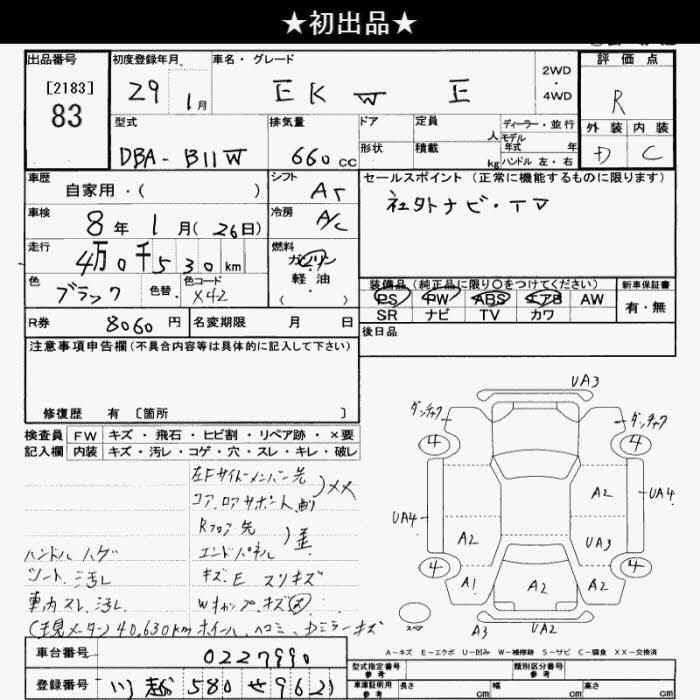 ★初出品★
出品番号
[2183]
83
初度登録年月
29 1月
車名・グレード
EK W E
2WD
・
4WD
評価点
R
外装 内装
D C
型式
DBA-B11W
排気量
660 cc
ドア
形状
定員
人
積載
kg
ディーラー・並行
モデル
年式 年
ハンドル 左・右
車歴
自家用・( )
シフト
AT
セールスポイント(正常に機能するものに限ります)
社外ナビ・TV
車検
8年 1月(26日)
冷房
A/C
走行
4万0千530km
燃料
ガソリン
軽油
( )
色
ブラック
色替
色コード
X42
装備品(純正品に限り○をつけてください)
PS PW ABS エアB AW
SR ナビ TV カワ
新車保証書
有・無
R券 8060円
名変期限 月 日
後日品
注意事項申告欄(不具合内容等は具体的に記入して下さい)
修復歴 有 〔箇所 〕
検査員 FW キズ・飛石・ヒビ割・リペア跡・×要
記入欄 内装 キズ・汚レ・コゲ・穴・スレ・キレ・破レ
左Fサイドメンバー先
コア,ロアサポート
)××
Rフロア先
エンドパネル
キズ E スリキズ
ハンドルハゲ
シート汚レ
車内スレ,汚レ
(現メーター) 40,630km
UA3
4 4
A2
UA4 UA4
A2 UA3
4 4
A1 A2 A2
スペア
A3 UA2
A-キズ E-エクボ U-凹み W-補修跡 S-サビ C-腐食 XX-交換済
車台番号 0227990
登録番号 川越 580 せ 9621
型式指定番号
参考
類別区分番号
参考
車庫証明用
参考
長さ cm 幅 cm 高さ cm